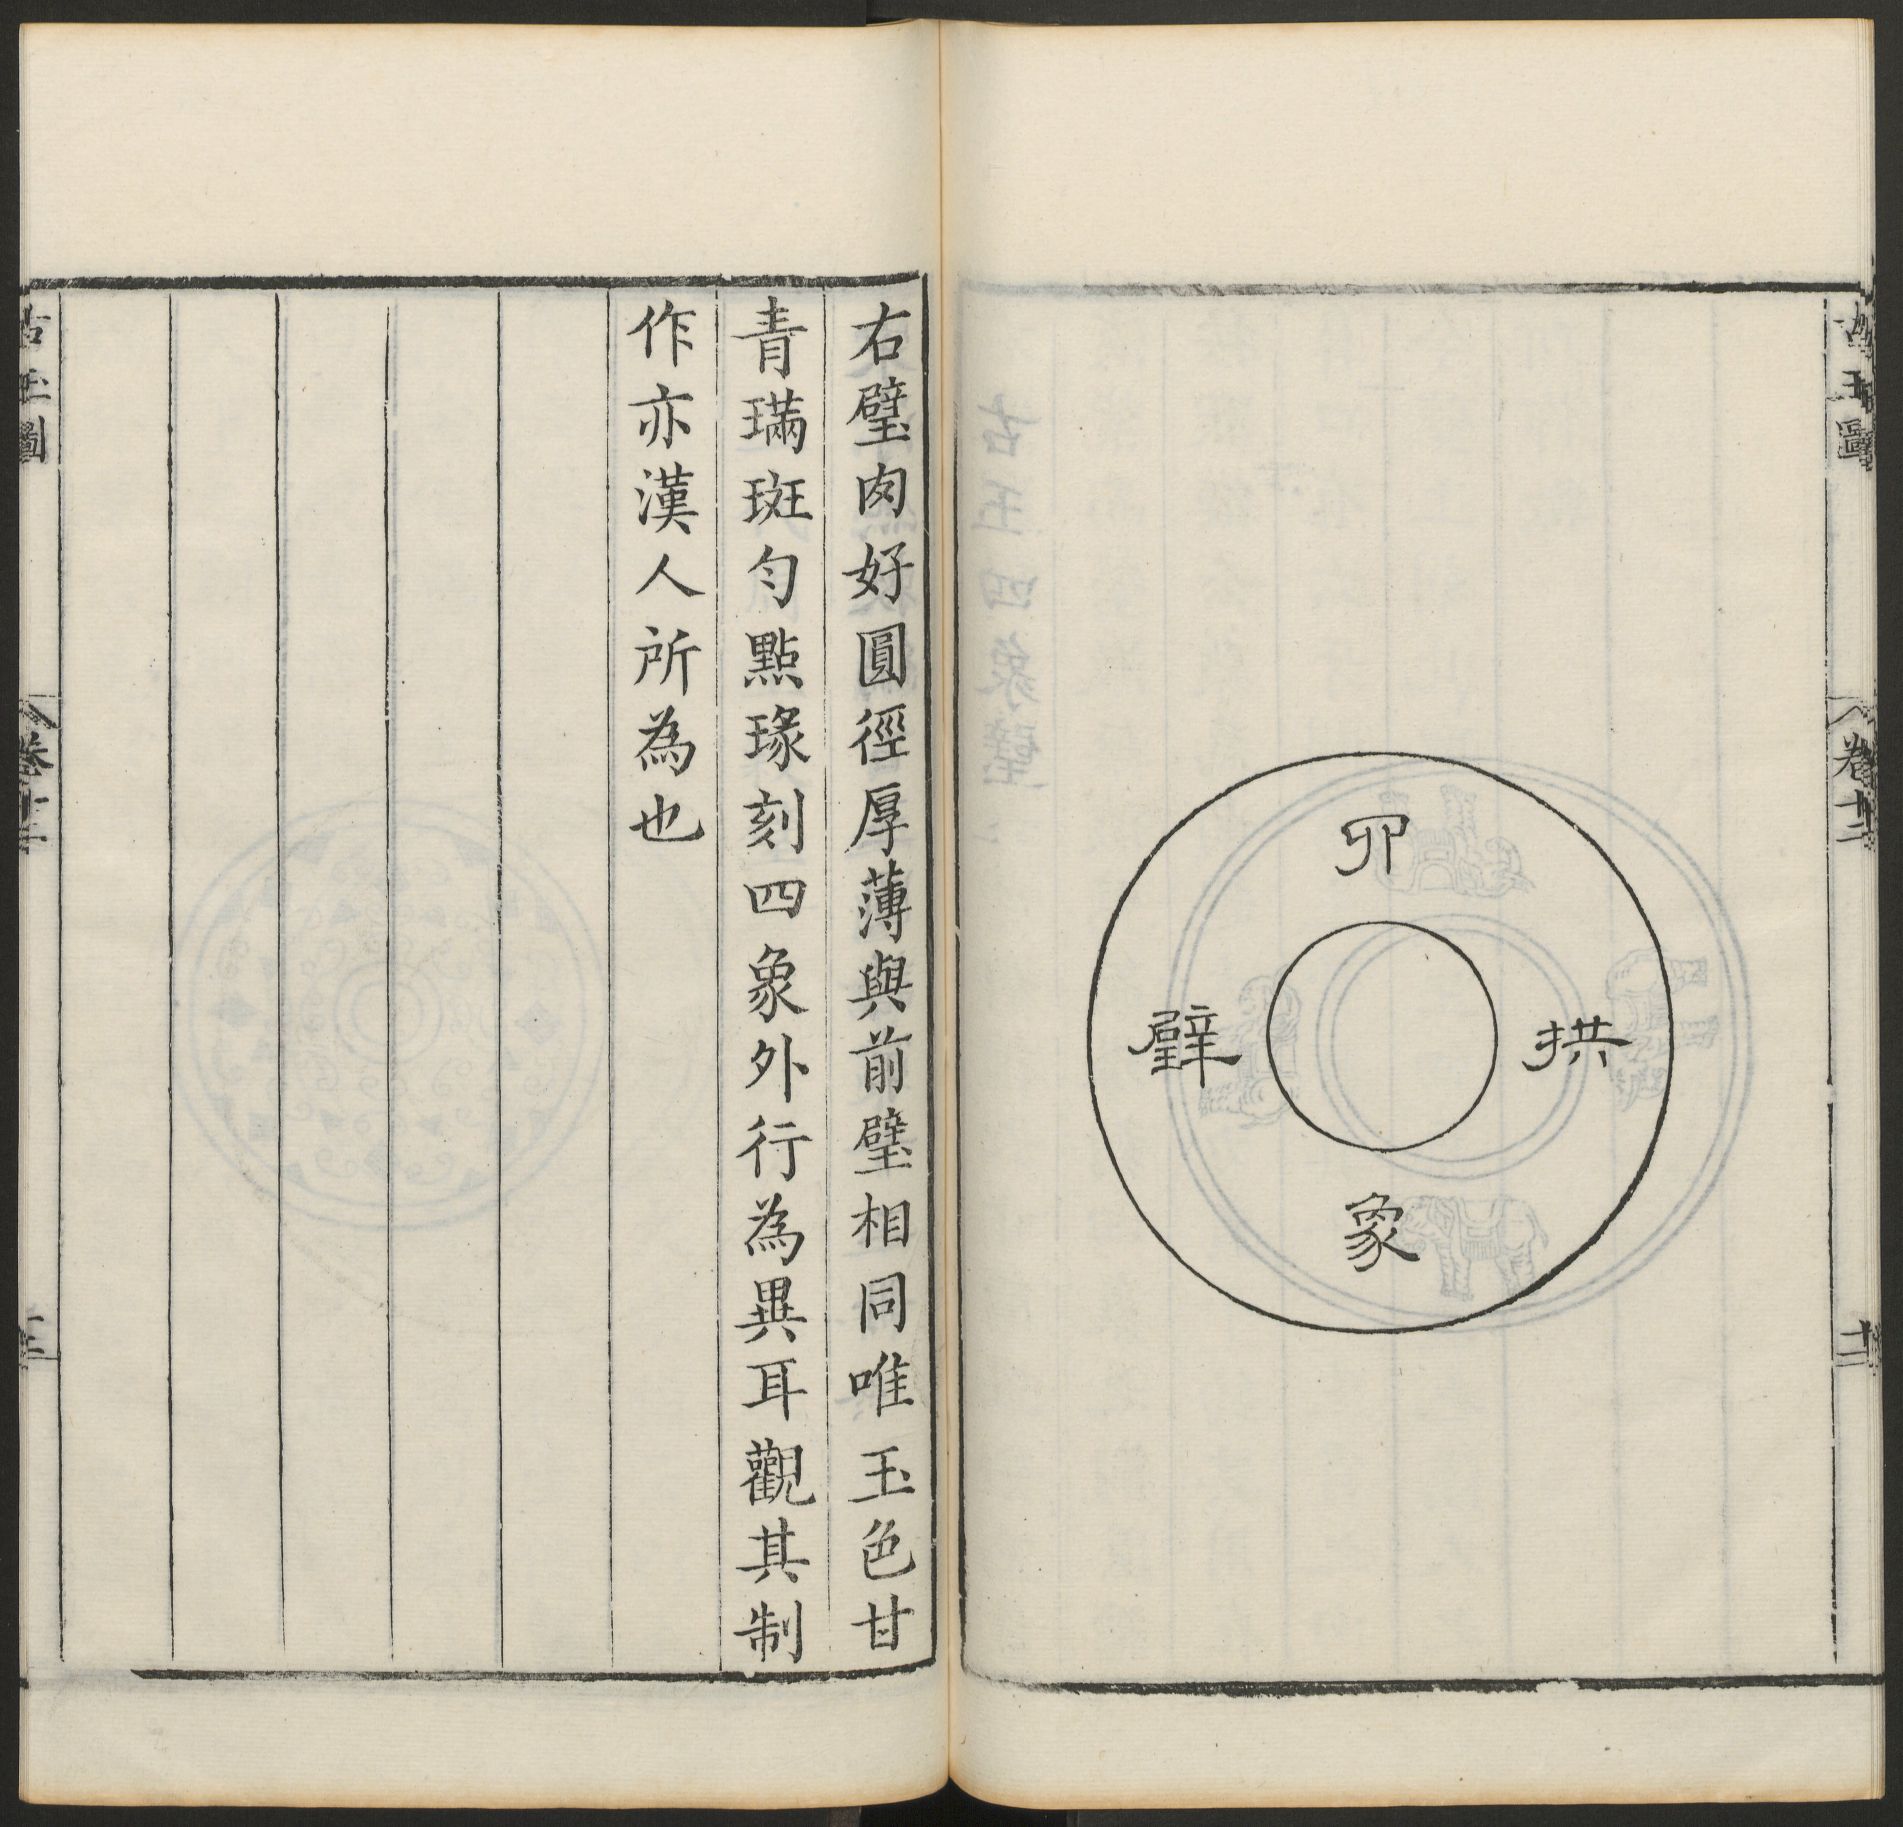 古玉圖
卷十二
十二
卯
拱
璧
象
右璧肉好圓徑厚薄與前璧相同唯玉色甘
青璊斑勻點瑑刻四象外行為異耳觀其制
作亦漢人所為也
古玉圖
卷十二